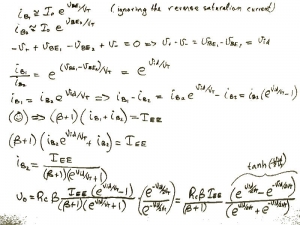 i_B1 ≅ I_o e^(V_BE1/V_T) (ignoring the reverse saturation current)
i_B2 ≅ I_o e^(V_BE2/V_T)
-V_+ + V_BE1 - V_BE2 + V_- = 0 => V_+ - V_- = V_BE1 - V_BE2 = V_id
i_B1/i_B2 = e^((V_BE1-V_BE2)/V_T) = e^(V_id/V_T)
i_B1 = i_B2 e^(V_id/V_T) => i_B1 - i_B2 = i_B2 e^(V_id/V_T) - i_B2 = i_B2 (e^(V_id/V_T) - 1)
=> (β+1)(i_B1 + i_B2) = I_EE
(β+1)(i_B2 e^(V_id/V_T) + i_B2) = I_EE
i_B2 = I_EE/((β+1)(e^(V_id/V_T)+1))
tanh(V_id/2V_T)
V_o = R_C β I_EE (e^(V_id/V_T) - 1)/((β+1)(e^(V_id/V_T)+1)) (e^(-V_id/2V_T)/e^(-V_id/2V_T)) = R_C β I_EE/(β+1) (e^(V_id/2V_T) - e^(-V_id/2V_T))/(e^(V_id/2V_T) + e^(-V_id/2V_T))